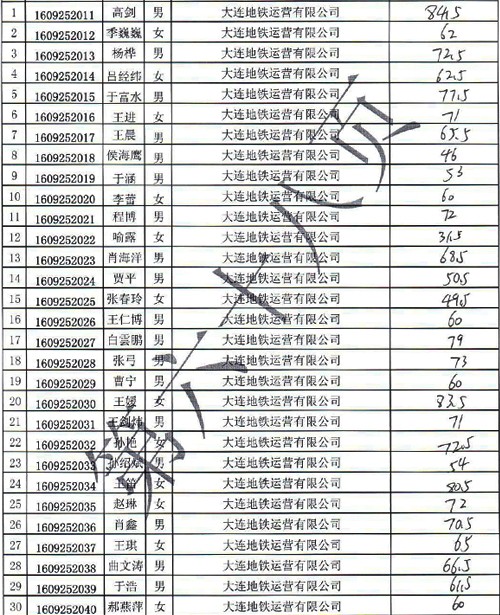 1 1609252011 高剑 男 大连地铁运营有限公司 84.5
2 1609252012 季巍巍 女 大连地铁运营有限公司 62
3 1609252013 杨桦 男 大连地铁运营有限公司 72.5
4 1609252014 吕经纬 女 大连地铁运营有限公司 62.5
5 1609252015 于富水 男 大连地铁运营有限公司 77.5
6 1609252016 王进 女 大连地铁运营有限公司 71
7 1609252017 王晨 男 大连地铁运营有限公司 65.5
8 1609252018 侯海鹰 男 大连地铁运营有限公司 46
9 1609252019 于涵 男 大连地铁运营有限公司 53
10 1609252020 李蕾 女 大连地铁运营有限公司 60
11 1609252021 程博 男 大连地铁运营有限公司 72
12 1609252022 喻露 女 大连地铁运营有限公司 31.5
13 1609252023 肖海洋 男 大连地铁运营有限公司 68.5
14 1609252024 贾平 男 大连地铁运营有限公司 50.5
15 1609252025 张春玲 女 大连地铁运营有限公司 49.5
16 1609252026 王仁博 男 大连地铁运营有限公司 60
17 1609252027 白雲鹏 男 大连地铁运营有限公司 79
18 1609252028 张弓 男 大连地铁运营有限公司 73
19 1609252029 曹宁 男 大连地铁运营有限公司 60
20 1609252030 王媛 女 大连地铁运营有限公司 83.5
21 1609252031 王剑炜 男 大连地铁运营有限公司 71
22 1609252032 孙艳 女 大连地铁运营有限公司 72.5
23 1609252033 孙绍斌 男 大连地铁运营有限公司 54
24 1609252034 王笛 女 大连地铁运营有限公司 80.5
25 1609252035 赵琳 女 大连地铁运营有限公司 72
26 1609252036 肖鑫 男 大连地铁运营有限公司 70.5
27 1609252037 王琪 女 大连地铁运营有限公司 65
28 1609252038 曲文涛 男 大连地铁运营有限公司 66.5
29 1609252039 于浩 男 大连地铁运营有限公司 61.5
30 1609252040 郝燕萍 女 大连地铁运营有限公司 60
第六十八页